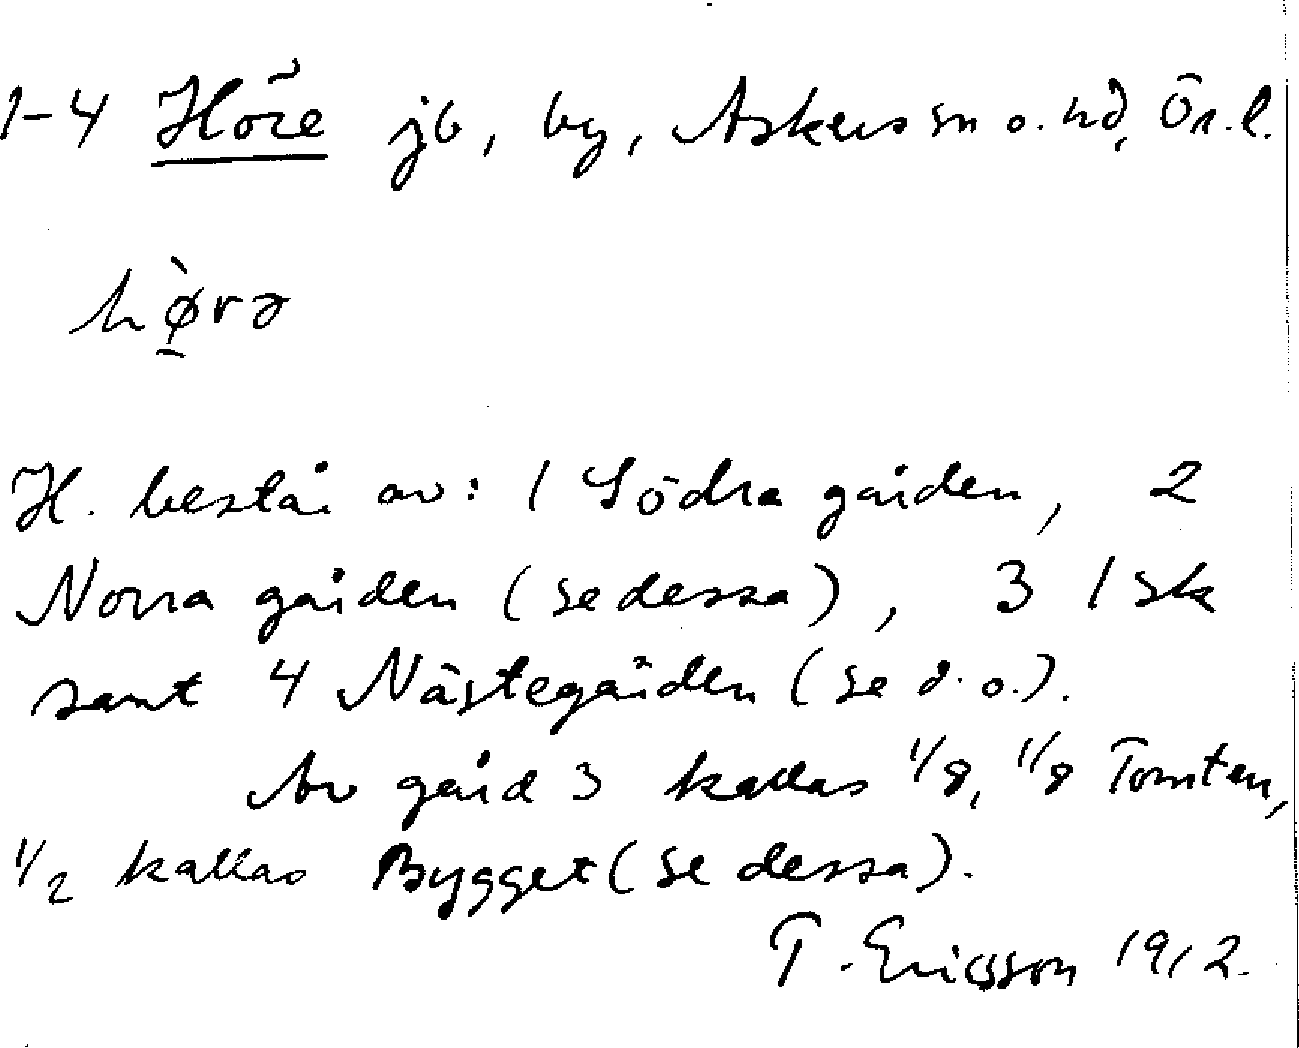 1-4 Höre jb, by, Askers sn o. hd, Ör. l.
hø̀rə
H. består av: 1 Södra gården, 2
Norra gården (se dessa), 3 1 sk
samt 4 Nästegården (se d. o.).
Av gård 3 kallas 1/8, 1/8 Tomten,
1/2 kallas Bygget (se dessa).
T. Ericsson 1912.